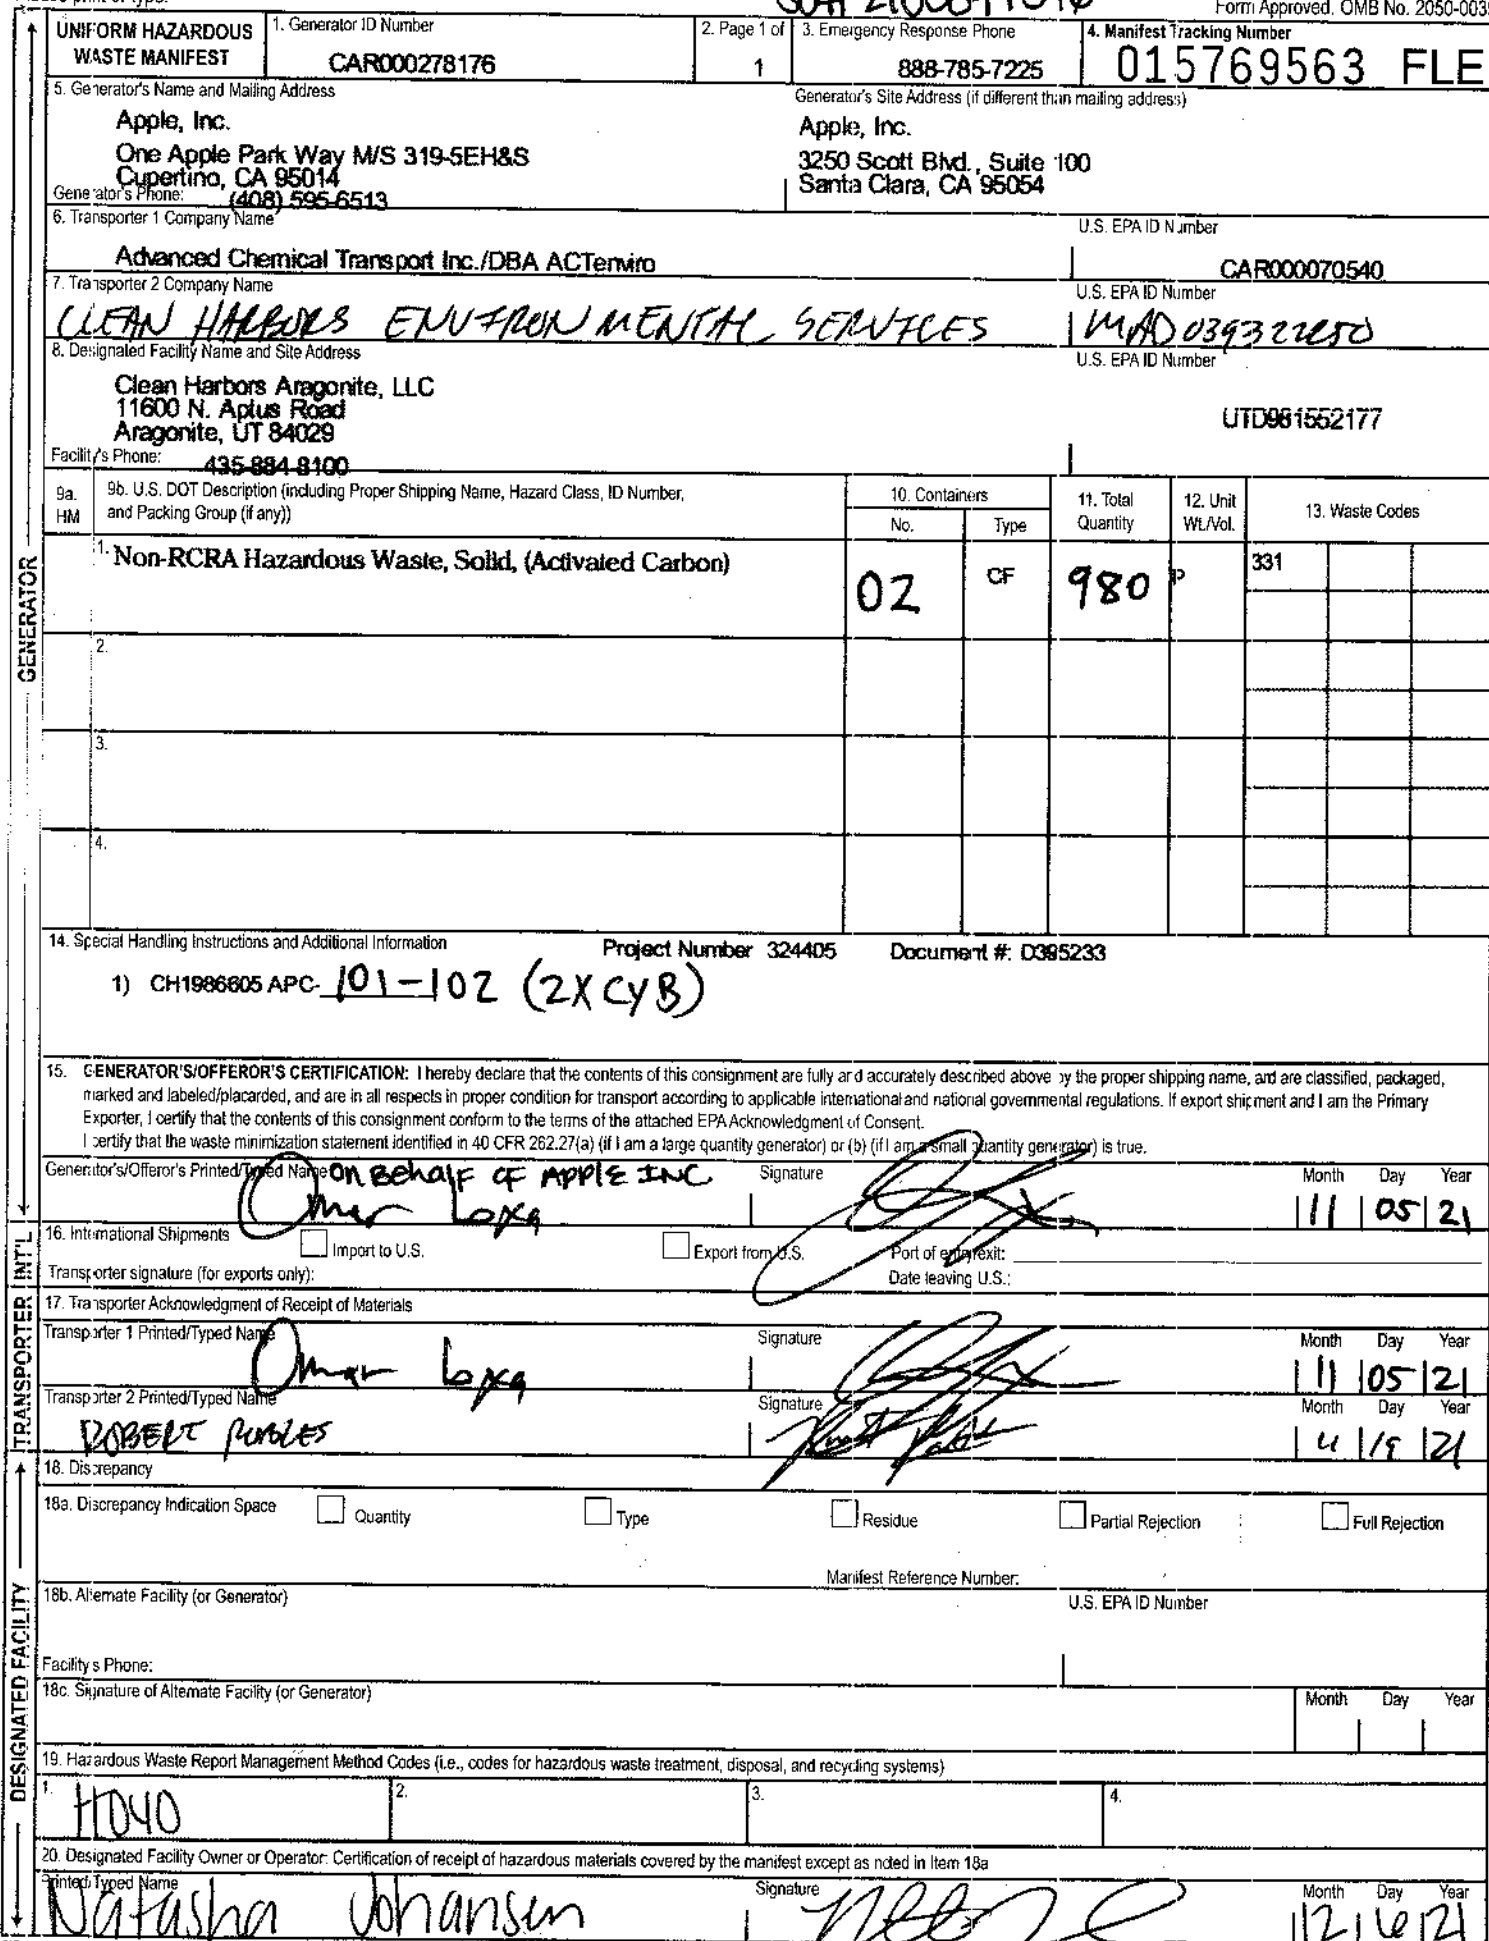 Form Approved. OMB No. 2050-003
UNIFORM HAZARDOUS WASTE MANIFEST
1. Generator ID Number
CAR000278176
2. Page 1 of
1
3. Emergency Response Phone
888-785-7225
4. Manifest Tracking Number
015769563 FLE
5. Generator's Name and Mailing Address
Generator's Site Address (if different than mailing address)
Apple, Inc.
One Apple Park Way M/S 319-5EH&S
Cupertino, CA 95014
Generator's Phone: (408) 595-6513
Apple, Inc.
3250 Scott Blvd., Suite 100
Santa Clara, CA 95054
6. Transporter 1 Company Name
U.S. EPA ID Number
Advanced Chemical Transport Inc./DBA ACTenviro
CAR000070540
7. Transporter 2 Company Name
U.S. EPA ID Number
CLEAN HARBORS ENVIRONMENTAL SERVICES
8. Designated Facility Name and Site Address
U.S. EPA ID Number
Clean Harbors Aragonite, LLC
11600 N. Aptus Road
Aragonite, UT 84029
UTD981552177
Facility's Phone: 435-884-8100
9a. HM
9b. U.S. DOT Description (including Proper Shipping Name, Hazard Class, ID Number,
and Packing Group (if any))
10. Containers
No. Type
11. Total Quantity
12. Unit Wt./Vol.
13. Waste Codes
1. Non-RCRA Hazardous Waste, Solid, (Activated Carbon)
02 CF 980 P 331
2.
3.
4.
14. Special Handling Instructions and Additional Information
Project Number 324405 Document #: D395233
1) CH1986605 APC- 101-102 (2X CYB)
15. GENERATOR'S/OFFEROR'S CERTIFICATION: I hereby declare that the contents of this consignment are fully and accurately described above by the proper shipping name, and are classified, packaged,
marked and labeled/placarded, and are in all respects in proper condition for transport according to applicable international and national governmental regulations. If export shipment and I am the Primary
Exporter, I certify that the contents of this consignment conform to the terms of the attached EPA Acknowledgment of Consent.
I certify that the waste minimization statement identified in 40 CFR 262.27(a) (if I am a large quantity generator) or (b) (if I am a small quantity generator) is true.
Generator's/Offeror's Printed/Typed Name ON BEHALF OF APPLE INC
Signature
Month Day Year
Omar
11 05 21
16. International Shipments
Import to U.S.
Export from U.S.
Port of entry/exit:
Transporter signature (for exports only):
Date leaving U.S.:
17. Transporter Acknowledgment of Receipt of Materials
Transporter 1 Printed/Typed Name
Signature
Month Day Year
Omar
11 05 21
Transporter 2 Printed/Typed Name
Signature
Month Day Year
ROBERT ROBLES
18. Discrepancy
18a. Discrepancy Indication Space
Quantity
Type
Residue
Partial Rejection
Full Rejection
Manifest Reference Number:
18b. Alternate Facility (or Generator)
U.S. EPA ID Number
Facility's Phone:
18c. Signature of Alternate Facility (or Generator)
Month Day Year
19. Hazardous Waste Report Management Method Codes (i.e., codes for hazardous waste treatment, disposal, and recycling systems)
1. H040
2.
3.
4.
20. Designated Facility Owner or Operator: Certification of receipt of hazardous materials covered by the manifest except as noted in Item 18a
Printed/Typed Name
Signature
Month Day Year
Natasha Johansen
12 6 21
GENERATOR
INT'L
TRANSPORTER
DESIGNATED FACILITY